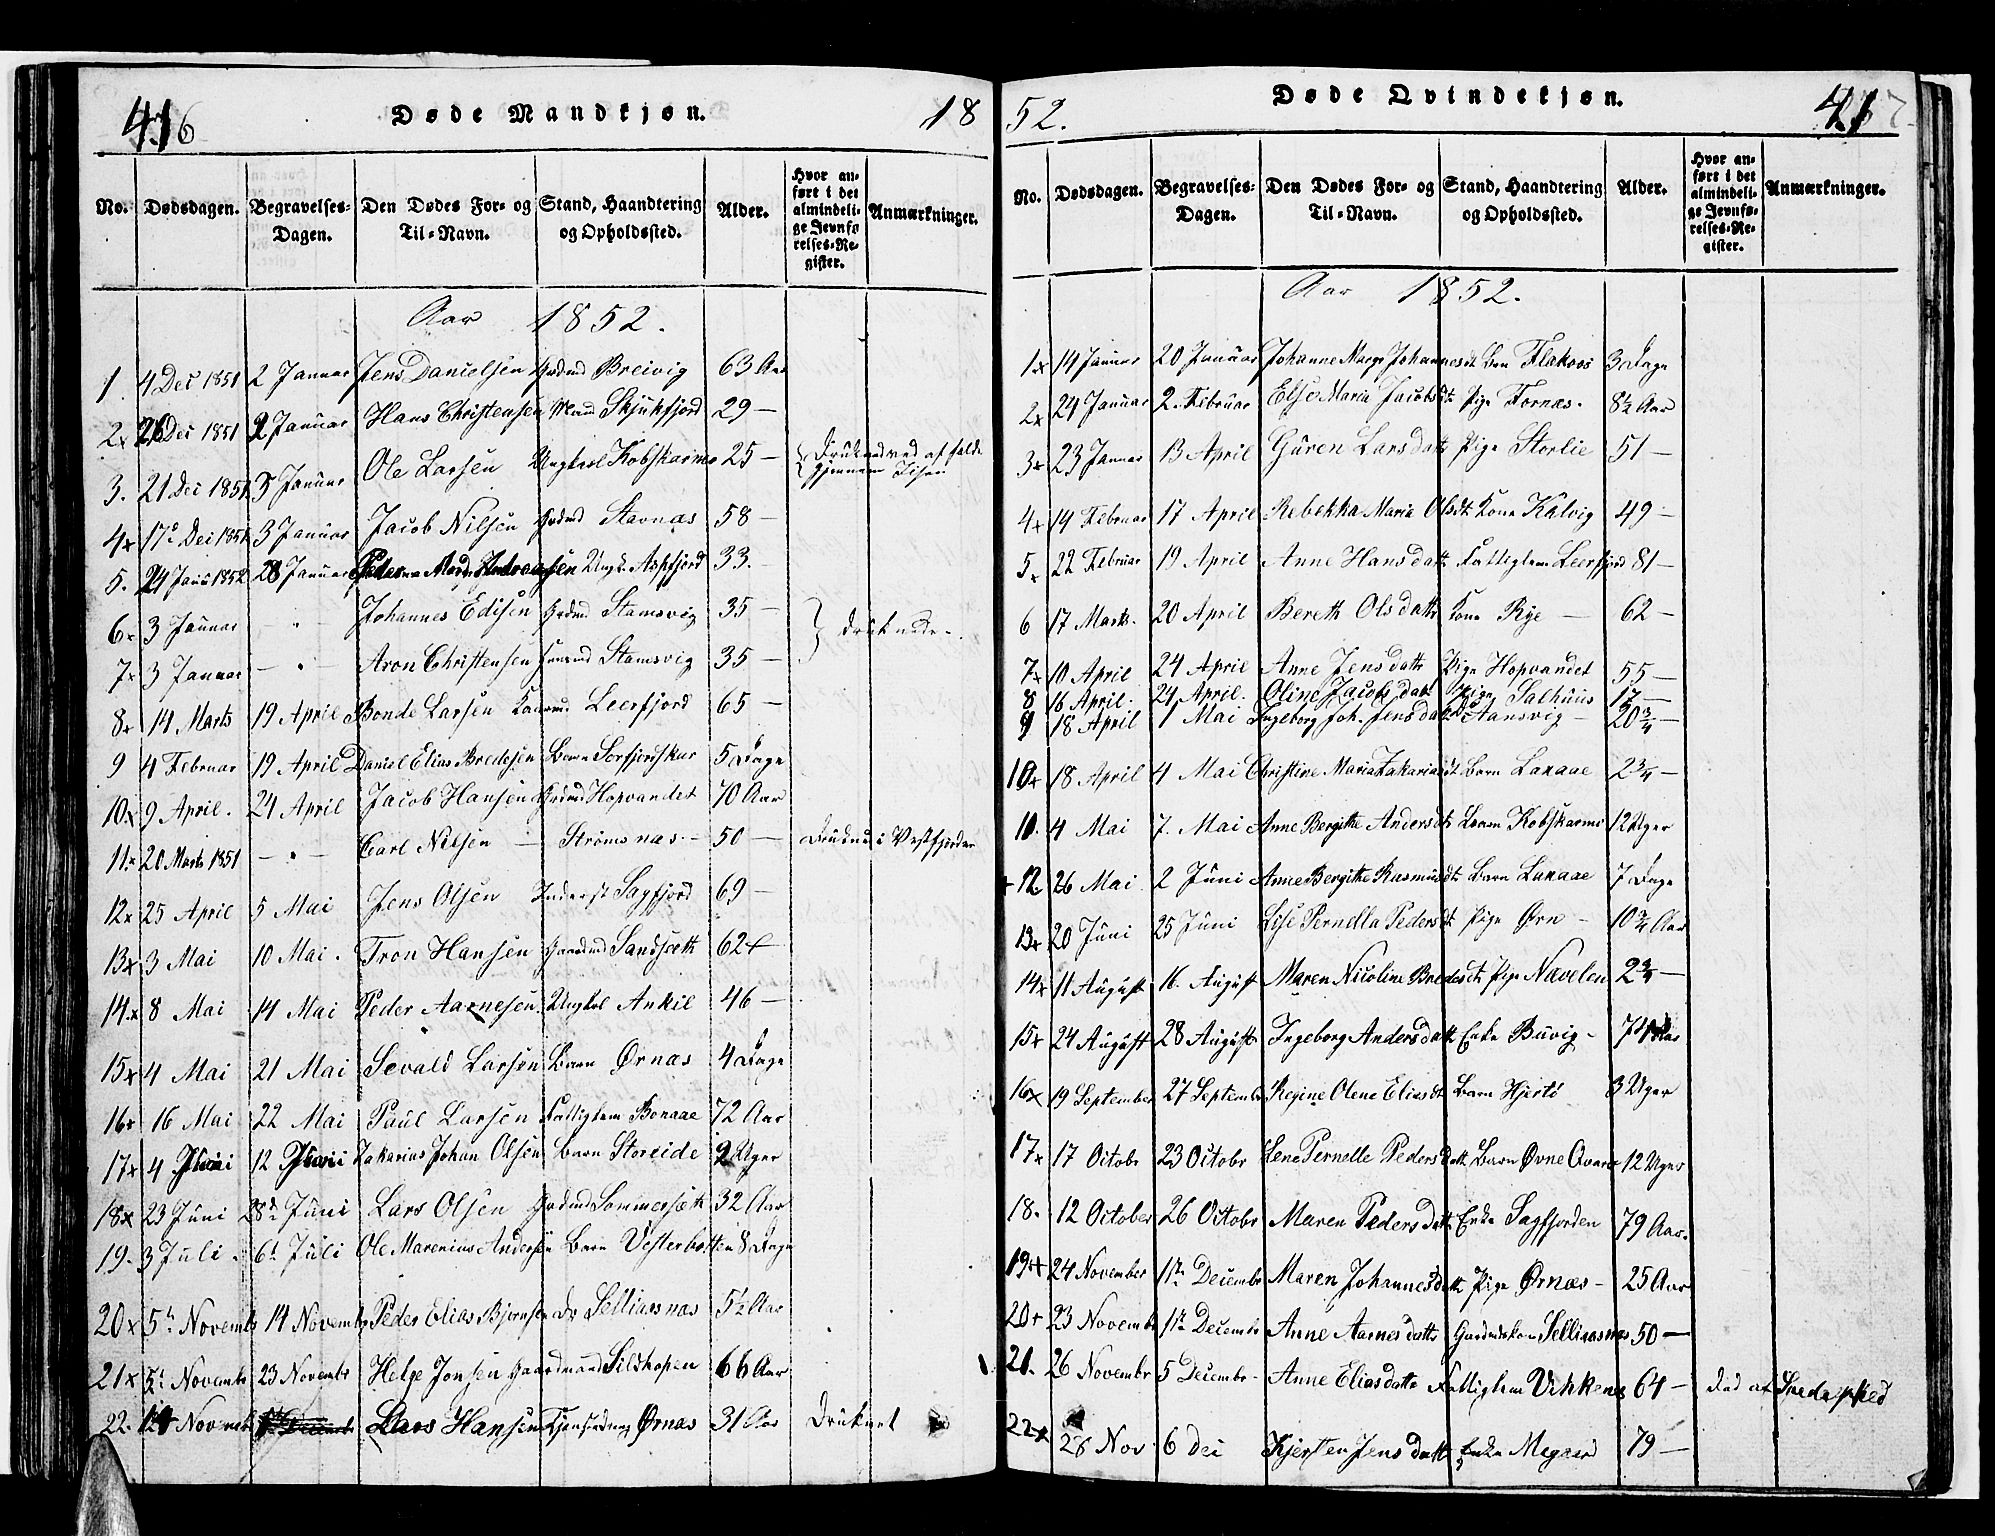 416 Døde Mandkjøn. 18
No. Dødsdagen. Begravelses-Dagen. Den Dødes For- og Til-Navn. Stand, Haandtering og Opholdssted. Alder. Hvor anført i det almindelige Jevnførelses-Register. Anmærkninger.
Aar 1852.
1 4 Dec 1851 2 Januar Jens Danielsen Grdmd Breivig 63 Aar
2x 26 Dec 1851 2 Januar Hans Christensen Skjukfjord 29 —
3. 21 Dec 1851 3 Januar Ole Larsen Ungkarl Kobskarnes 25 — Druknedved at falde gjennem Iisen
4x 17de Dec 1851 3 Januar Jacob Nilsen Grdmd Stavnæs 58 —
5. 24 Janu 1852 28 Januar Peder Mads Andreassen Ungk. Aspfjord 33.
6x 3 Januar — " — Johannes Edisen Grdmd Stamsvig 35 — } druknede.
7x 3 Januar — " — Aron Christensen Stamsvig 35 —
8x 14 Marts 19 April Bonde Larsen Leerfjord 65 —
9 4 Februar 19 April Daniel Elias Bredesen Barn Sorfjordskar 5 Dage
10x 9 April. 24 April Jacob Hansen Grdmd Hopvandet 70 Aar
11x 20 Marts 1851 — " — Carl Nilsen — Strømsnæs — 50 — i Vestfjorden
12x 25 April 5 Mai Jens Olsen Inderst Sagfjord 69 —
13x 3 Mai 10 Mai. Tron Hansen Gaardmd Sandsæth 62
14.x 8 Mai 14 Mai Peder Aarnesen Ungkal Ankil 46 —
15x 4 Mai 21 Mai Sevald Larsen Barn Ørnæs 4 Dage
16x 16 Mai 22 Mai Paul Larsen Fattiglem Bonaae 72 Aar
17x 4 Juni 12 Juni Zakarias Johan Olsen Barn Storeide 2 Uger
18x 23 Juni 28de Juni Lars Olsen Grdmd Sommersæth 32 Aar
19. 3 Juli. 6te Juli Ole Marenius Andersen Barn Vesterbotten 8 Dage
20x 5te Novembr 14 Novembr Peder Elias Bjørnsen do Selliaasnæs 5½ Aar
21x 5te Novembr 23 Novembr Helge Jonsen Gaardmand Sildhopen 66 Aar
22. Novembr Lars Hansen Ørnæs 31 Aar Druknet
52. Døde Qvindekjøn. 41
No. Dødsdagen. Begravelses-Dagen. Den Dødes For- og Til-Navn. Stand, Haandtering og Opholdssted. Alder. Hvor anført i det almindelige Jevnførelses-Register. Anmærkninger.
Aar 1852.
1x 14 Januar 20 Januar Johanne Marge Johannesdt Barn Flekvos 3 Dage
2x 24 Januar 2. Februar Else Maria Jacobsdt Pige Fornæs. 8½ Aar
3x 23 Januar 13 April Guren Larsdatt Pige Storlie 51 —
4x 14 Februar 17 April Rebekka Maria Olsdt Kone Kalvig 49 —
5x 22 Februar 19 April Anne Hansdatt Fattiglem Leerfjord 81 —
6 17 Marts. 20 April Bereth Olsdatt Kone Rye — 62 —
7x 10 April 24 April Anne Jensdatt Pige Hopvandet 55 —
8 16 April. 24 April. Oline Jacobsdatt Pige Salhuus 17 —
9 18 April 1 Mai Ingeborg Joh. Jensdatt Do Aansvig — 20¾ —
10x 18 April 4 Mai Christine Maria Zakariasdt Barn Lanaae 2¾ —
10. 4 Mai 7. Mai Anne Bergithe Andersdt Barn Kobskarnes 12 Uger
+ 12. 26 Mai 2 Juni Anne Bergithe Rasmusdt Barn Lanaae 7 Dage
13x 20 Juni 25 Juni Lise Pernella Pedersdt Pige Ørn — 10¾ Aar
14x 11 August 16. August Maren Nicoline Bredesdt Pige Nævelen 2¾ —
15x 24 August 28 August Ingeborg Andersdatt Enke Buvig — 74 Aar
16x 19 September 27 Septembr Regine Olene Eliasdt Barn Hjertø 3 Uger
17x 17 Octobr 23 Octobr Lene Pernelle Pedersdatt Barn Øvne 12 Uger
18. 12 October 26 Octobr Maren Pedersdatt Enke Sagfjorden 79 Aar.
19x 24 November 11te Decembr Maren Johannesdatt Pige Ørnæs — 25 Aar
20+ 23 Novembr 11te Decembr Anne Aarnesdatt Gaardmdskone Selliaasnæs 50 —
21. 26 Novembr 5 Decembr — Anne Eliasdatt Fattiglem Vikkenes 64 — død af Spedalskhed
22x 26 Nov. 6 Dec Kjersten Jensdatt Enke Megaard 79 —